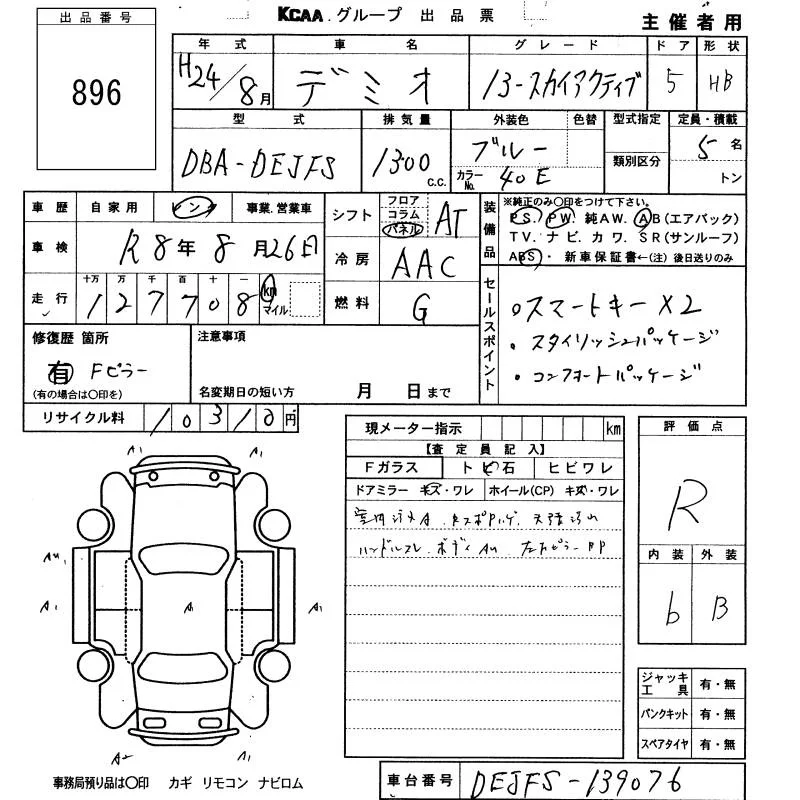 KCAA.グループ 出品票
主催者用
出品番号
896
年式 車名 グレード ドア 形状
H24/8月 デミオ 13-スカイアクティブ 5 HB
型式 排気量 外装色 色替 型式指定 定員・積載
DBA-DEJFS 1300 C.C. ブルー 類別区分 5名
カラーNo. 40E トン
車歴 自家用 レンタ 事業.営業車
車検 R8年8月26日
走行 十万 万 千 百 十 一
127708 km マイル
シフト フロア コラム パネル AT
冷房 AAC
燃料 G
装備品
※純正のみ〇印をつけて下さい。
PS. PW. 純AW. AB(エアバック)
TV. ナビ. カワ. SR(サンルーフ)
ABS・ 新車保証書←(注) 後日送りのみ
セールスポイント
・スマートキーX2
・スタイリッシュパッケージ
・コンフォートパッケージ
修復歴 箇所
有 Fピラー
(有の場合は〇印を)
注意事項
名変期日の短い方 月 日まで
リサイクル料 10310円
現メーター指示 km
【査定員記入】
Fガラス トビ石 ヒビワレ
ドアミラー キズ・ワレ ホイール(CP) キズ・ワレ
ハンドルスレ ボディAU
評価点
R
内装 外装
b B
ジャッキ工具 有・無
パンクキット 有・無
スペアタイヤ 有・無
A1 A1
AU A1
A1 A1 A1
A2 A1
事務局預り品は〇印 カギ リモコン ナビロム
車台番号 DEJFS-139076